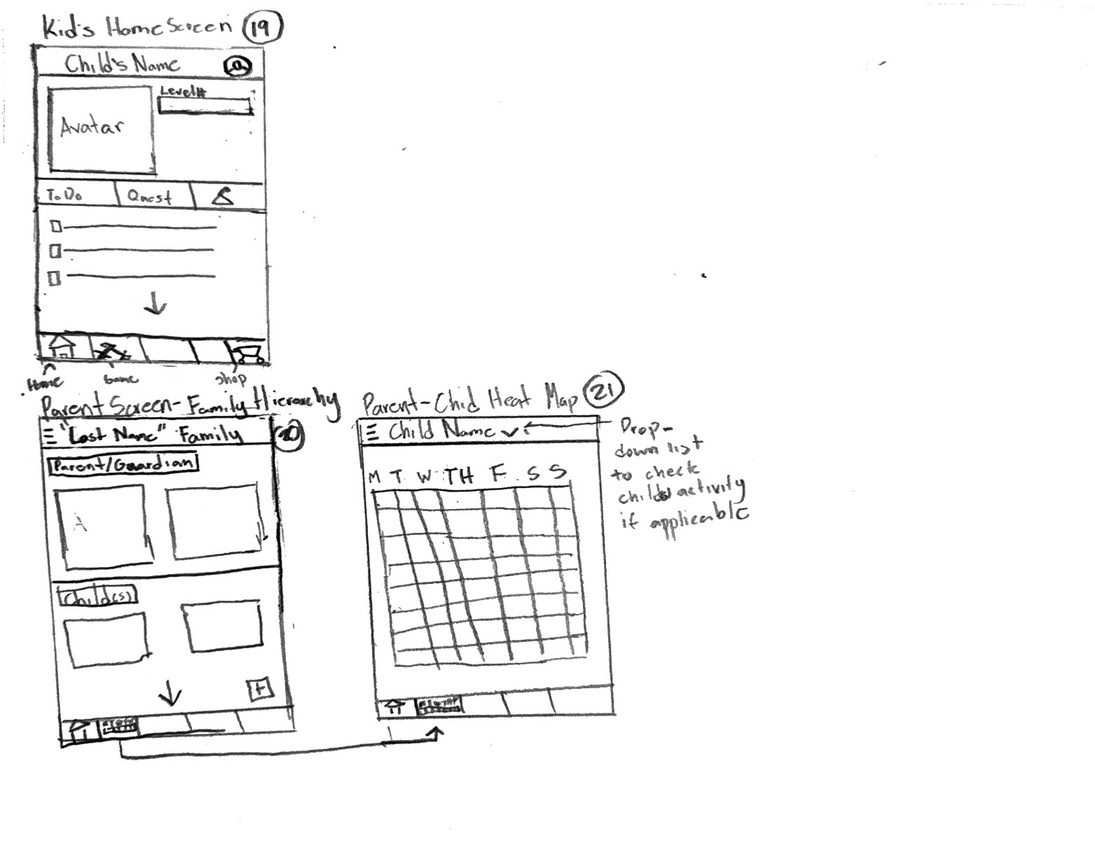 Kid's Home Screen 19
Child's Name
Level#
Avatar
To Do Quest
Home Game Shop
Parent Screen - Family Hierarchy
"Last Name" Family
Parent/Guardian
A
Child(s)
+
Parent-Chid Heat Map 21
Child Name
M T W TH F S S
Drop-
down list
to check
childs activity
if applicable